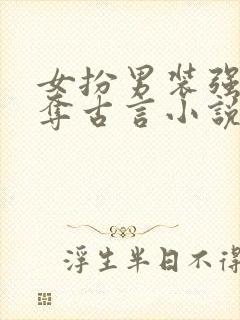 女扮男装强
夺古言小説
浮生半日不得